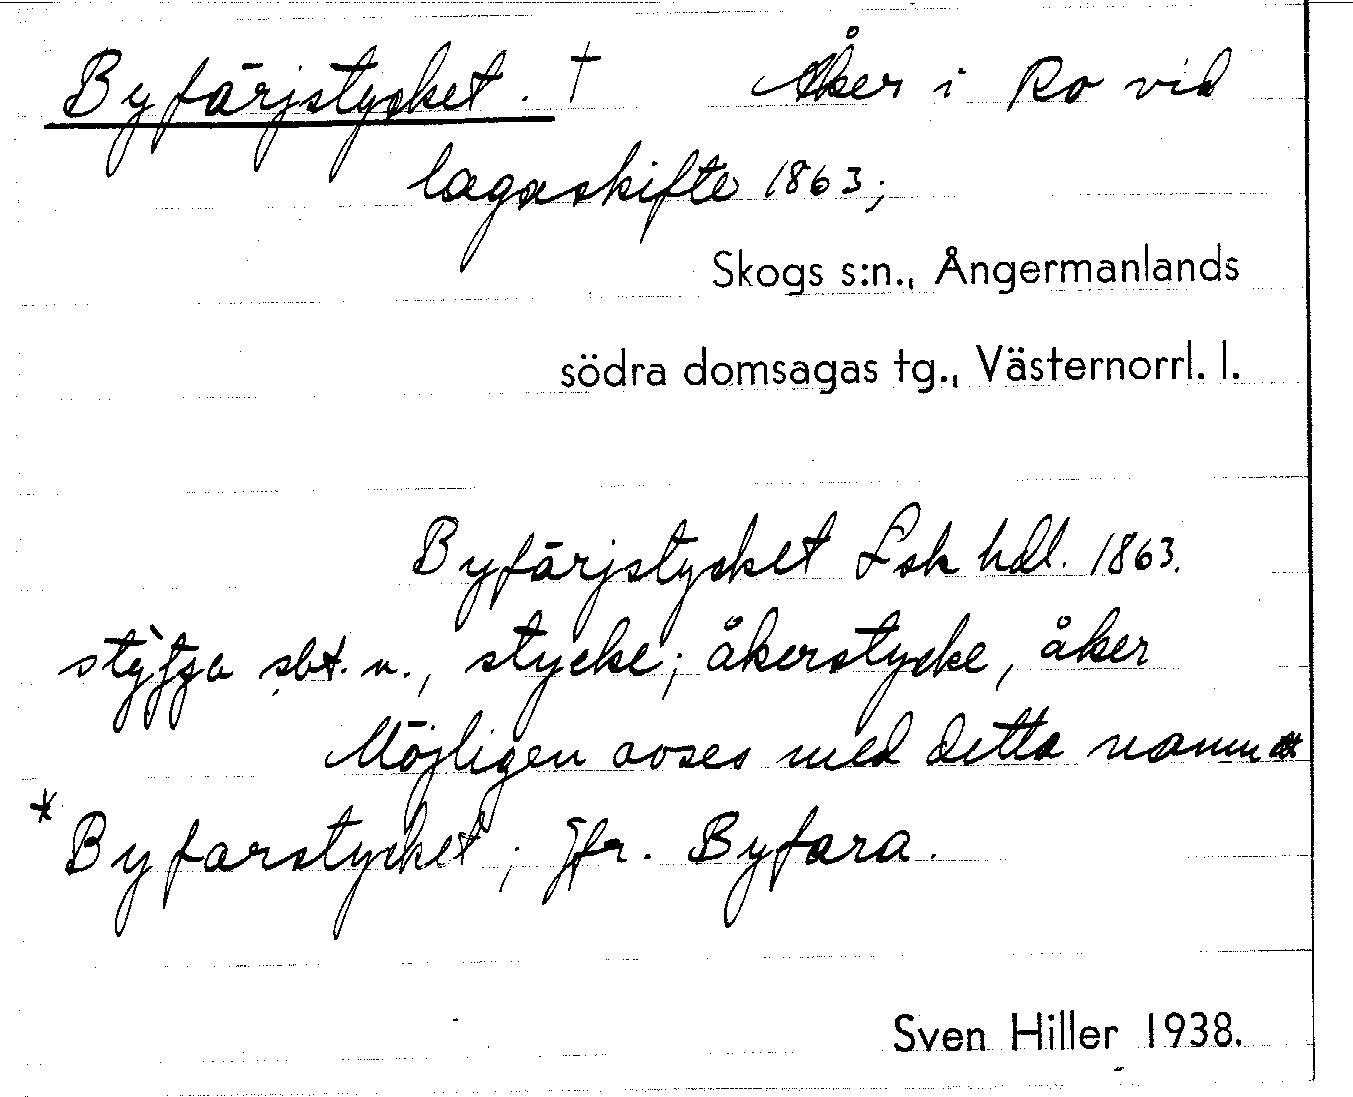 Byfärjstycket. † Åker i Ro vid
lagaskifte 1863;
Skogs s:n., Ångermanlands
södra domsagas tg., Västernorrl. l.
Byfärjstycket Lsk hdl. 1863.
sbt. n., stycke; åkerstycke, åker
Möjligen avses med detta namn
*Byfarstycket; Jfr. Byfara.
Sven Hiller 1938.